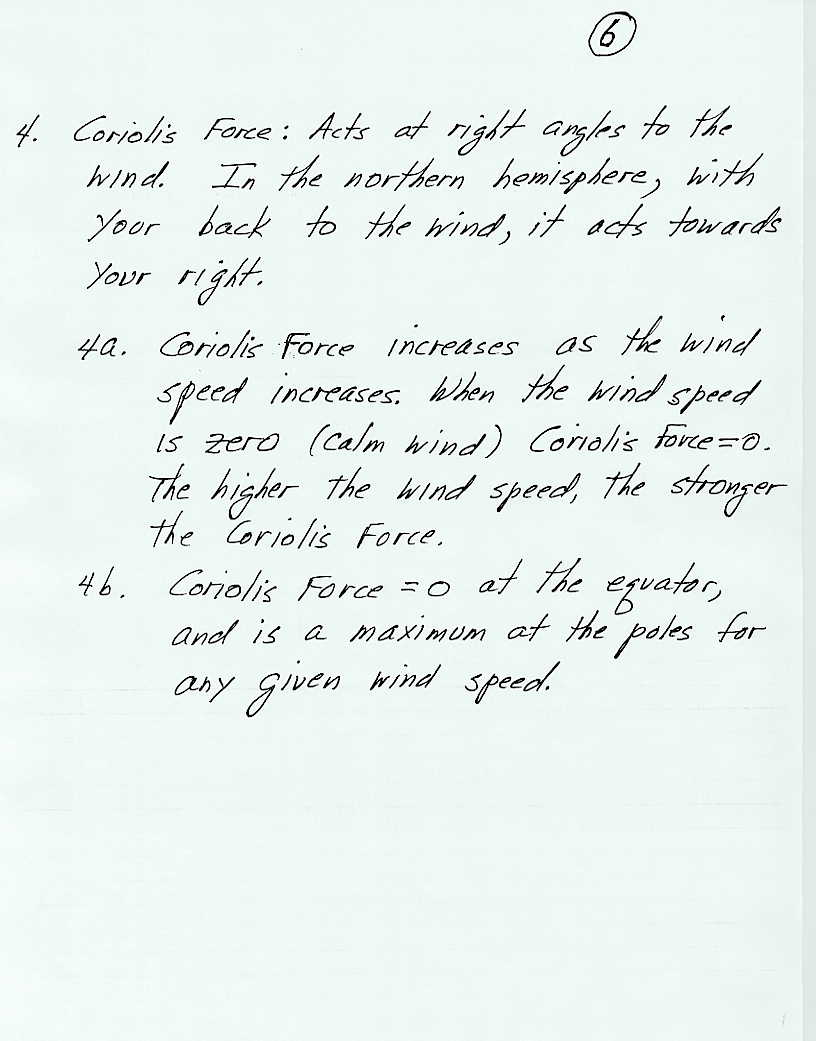 6
4. Coriolis Force: Acts at right angles to the
wind. In the northern hemisphere, with
your back to the wind, it acts towards
your right.
4a. Coriolis Force increases as the wind
speed increases. When the wind speed
is zero (calm wind) Coriolis Force=0.
The higher the wind speed, the stronger
the Coriolis Force.
4b. Coriolis Force = 0 at the equator,
and is a maximum at the poles for
any given wind speed.